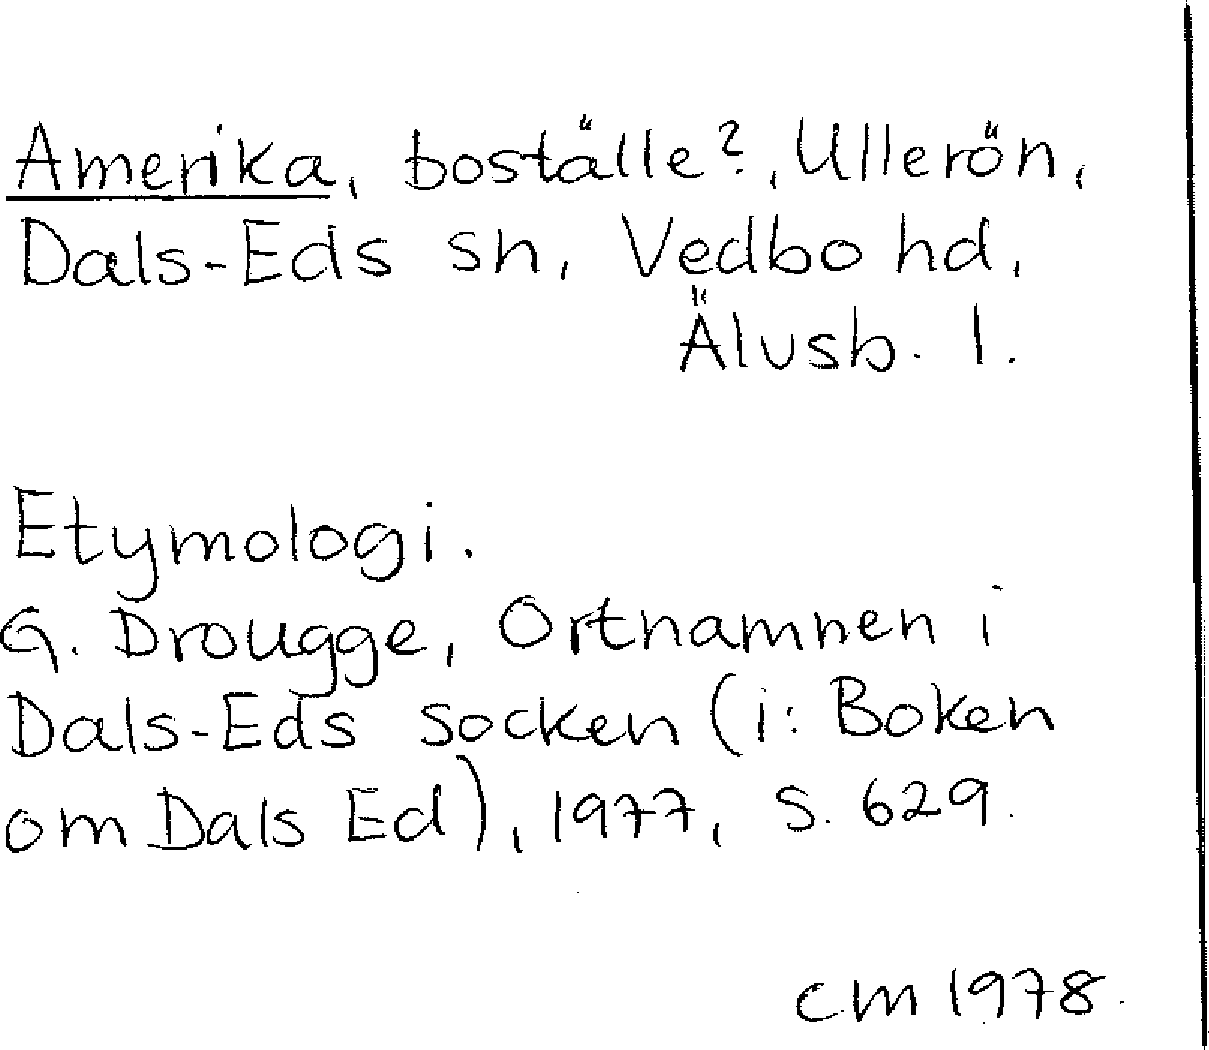 Amerika, boställe?, Ullerön,
Dals-Eds sn, Vedbo hd,
Älvsb. l.
Etymologi.
G. Drougge, Ortnamnen i
Dals-Eds socken (i: Boken
om Dals Ed), 1977, s. 629.
CM 1978.